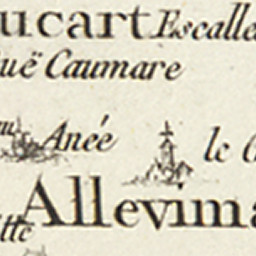 ucart Escalle
uë Caumare
au Anée le
Allevima
tte